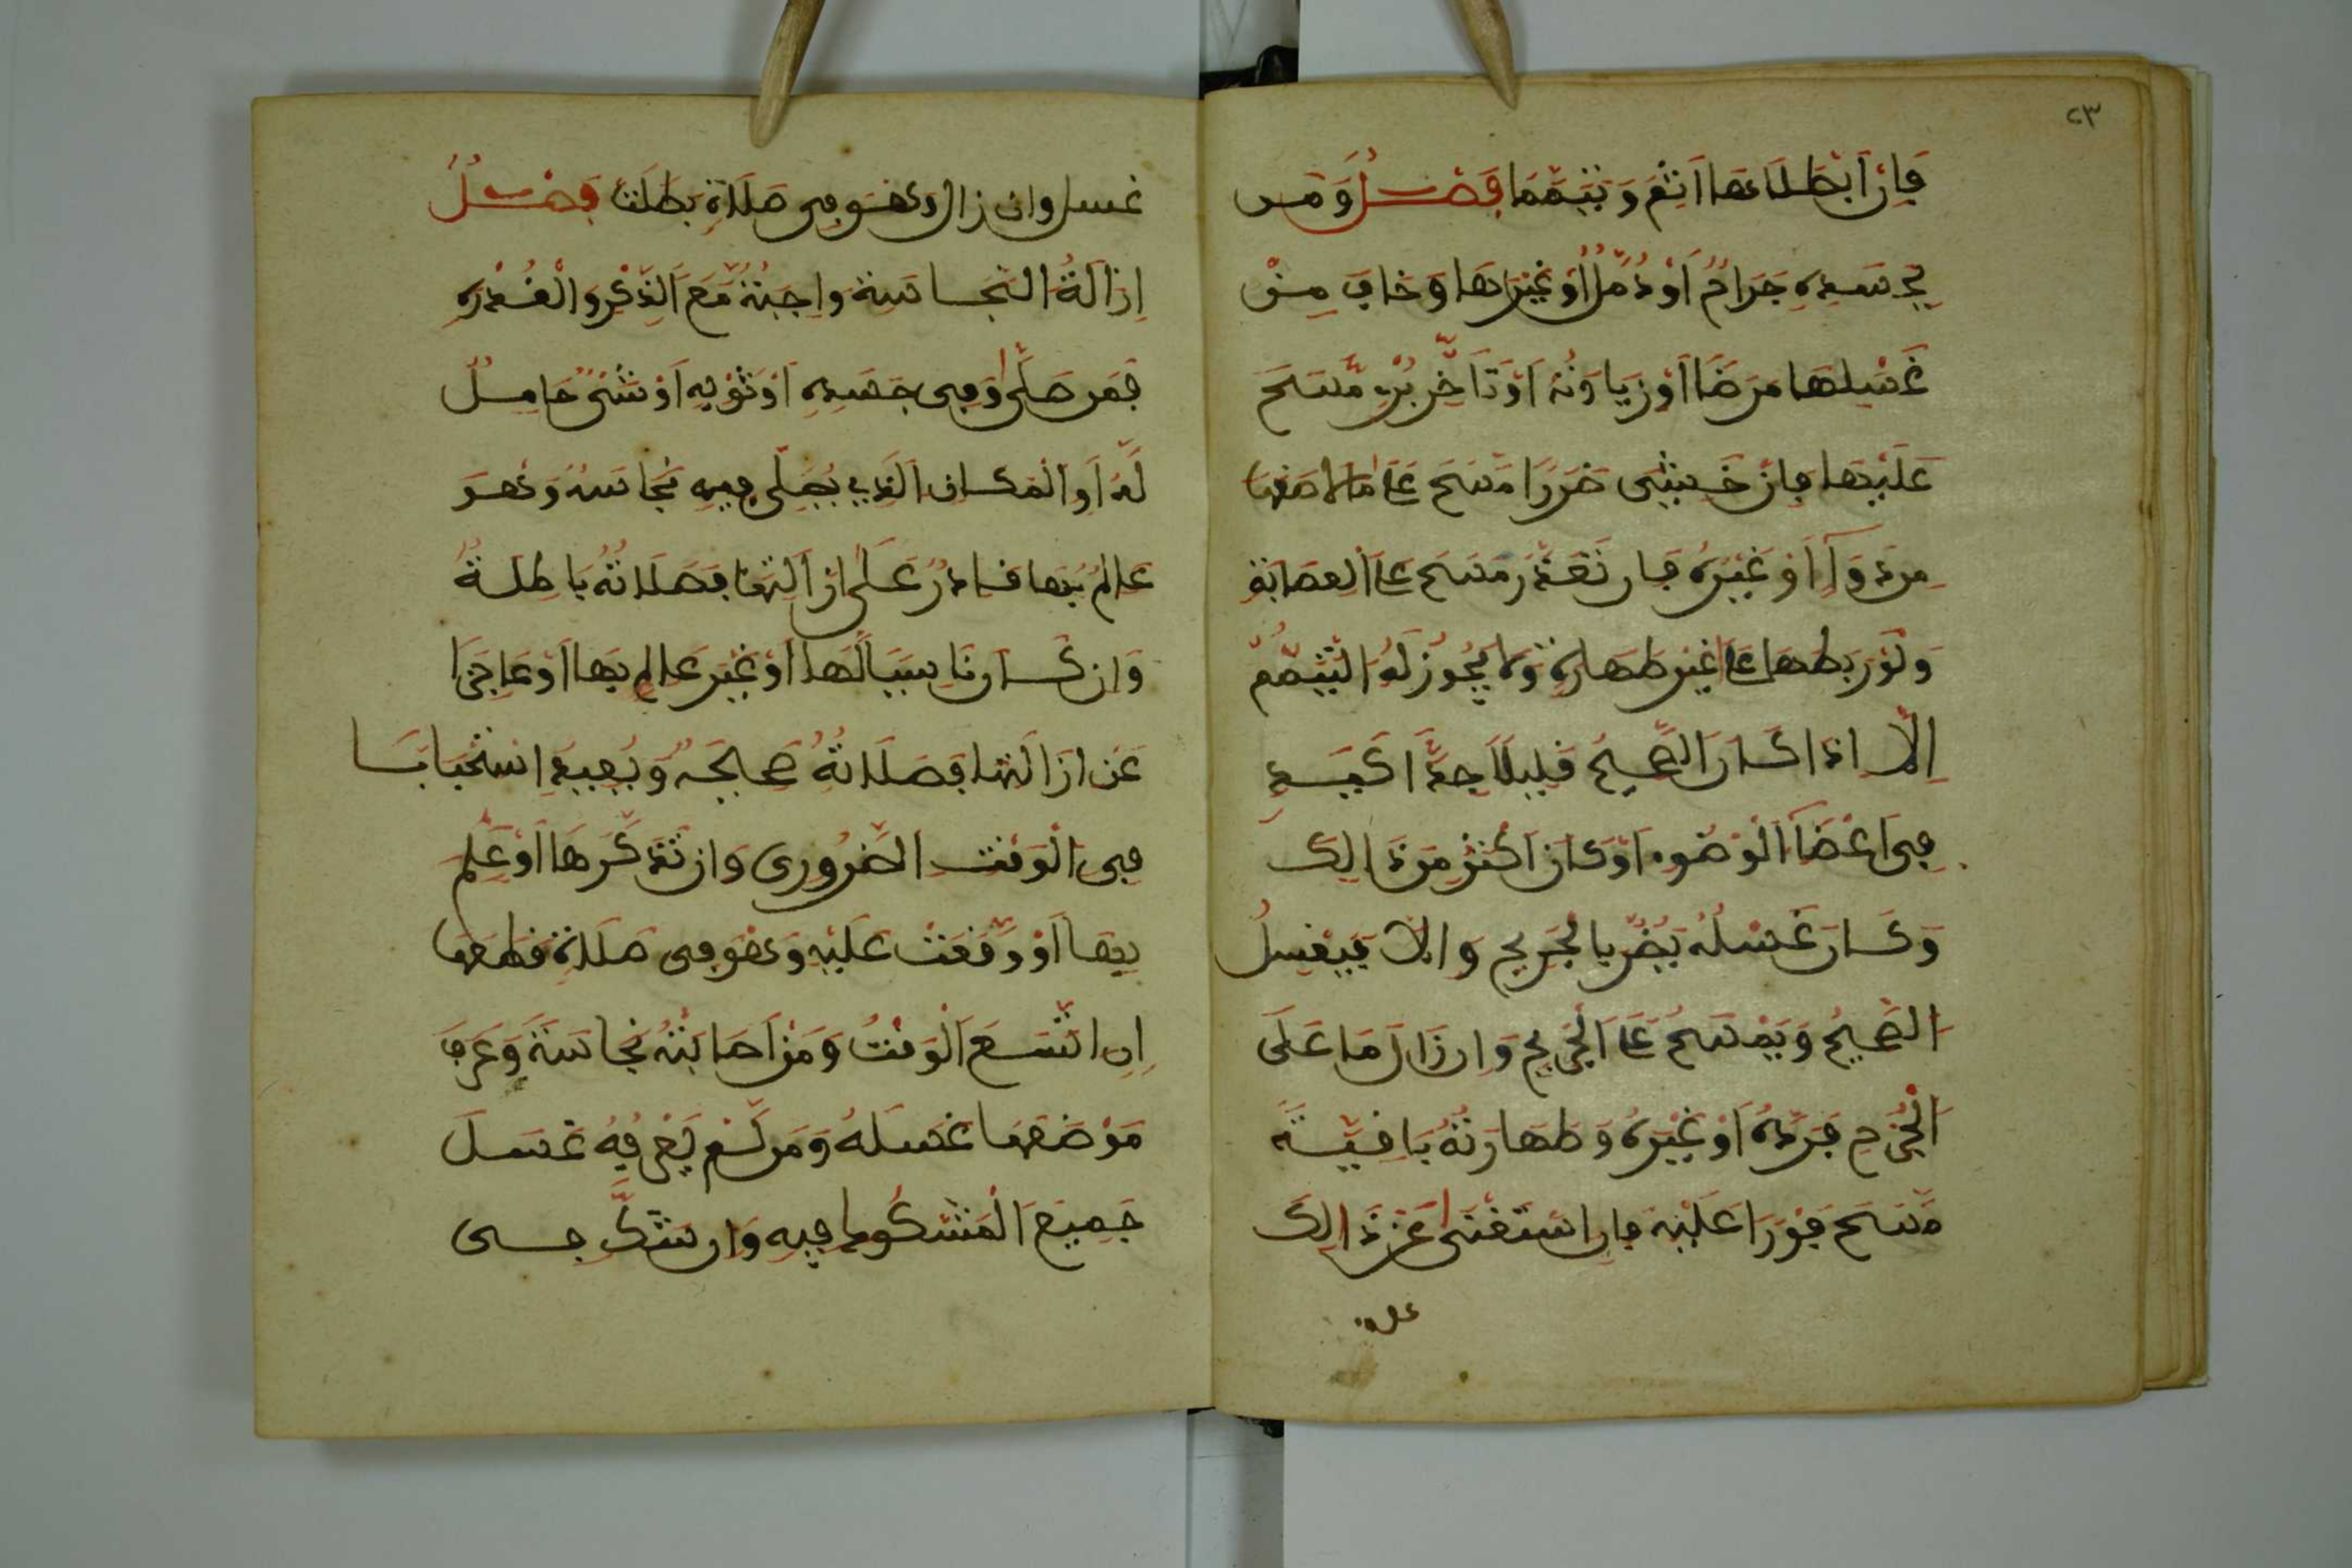 ٢٣
فإن أبطلاها أثم وتيمما فصل ومن
بجسده جراح أو دمل أو غيرها وخاف من
غسلها مرضا أو زيادته أو تأخر برء مسح
عليها فإن خشي ضررا مسح على ما لاصقها
من دواء أو غيره فإن تعذر مسح على العصابة
ولو ربطها على غير طهارة ولا يجوز له التيمم
إلا إذا كان الصحيح قليلا جدا كيد
في أعضاء الوضوء أو كان أكثر من ذالك
وكان غسله يضر بالجريح وإلا فيغسل
الصحيح ويمسح على الجريح وإن زال ما على
الجرح فرده أو غيره وطهارته باقية
مسح فورا عليه فإن استغنى عن ذالك
غسل
غسل وإن زال وهو في صلاة بطلت فصل
إزالة النجاسة واجبة مع الذكر والقدرة
فمن صلى وفي جسده أو ثوبه أو شيء حامل
له أو المكان الذي يصلي فيه نجاسة وهو
عالم بها قادر على إزالتها فصلاته باطلة
وإن كان ناسيا لها أو غير عالم بها أو عاجزا
عن إزالتها فصلاته صحيحة ويعيد استحبابا
في الوقت الضروري وإن تذكرها أو علم
بها أو وقعت عليه وهو في صلاة قطعها
إن اتسع الوقت ومن أصابته نجاسة وعرف
موضعها غسله ومن لم يعرفه غسل
جميع المشكوك فيه وإن شك في